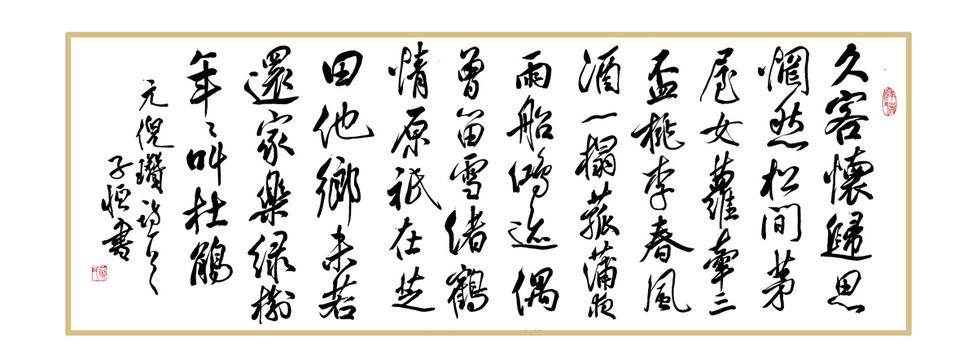 久客懷歸思
惘然松間茅
屋女蘿牽三
盃桃李春風
酒一榻菰蒲夜
雨船鴻迹偶
曾留雪渚鶴
情原祇在芝
田他鄉未若
還家樂綠樹
年〻叫杜鵑
元倪瓚詩
子恒書